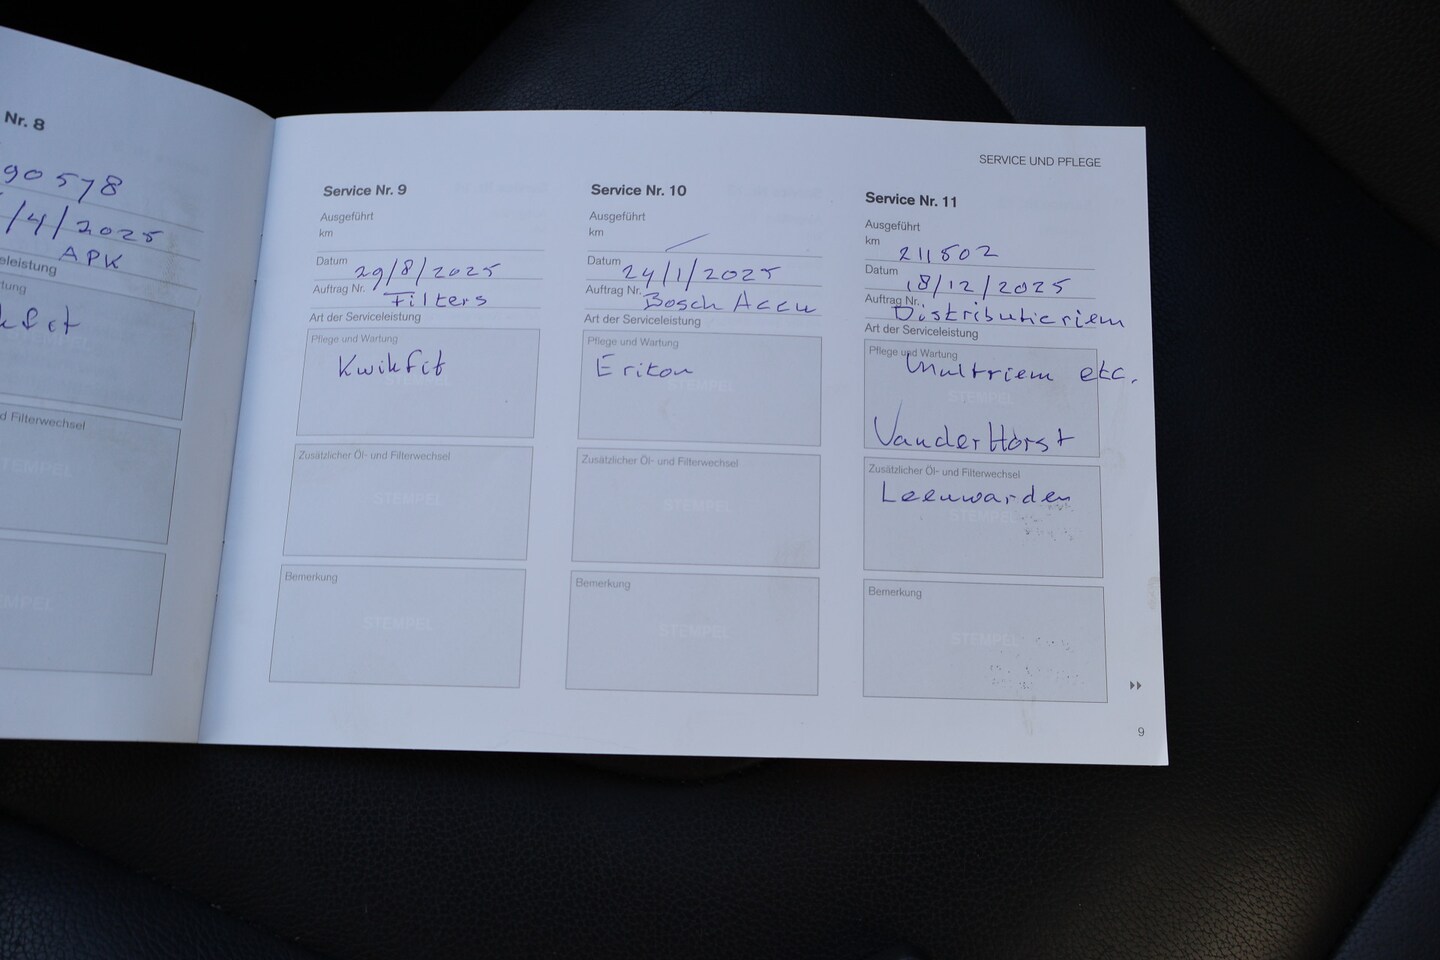 Nr. 8
90578
/4/2025
APK
eleistung
tung
kfit
d Filterwechsel
TEMPEL
EMPEL
SERVICE UND PFLEGE
Service Nr. 9
Ausgeführt
km
Datum 29/8/2025
Auftrag Nr. Filters
Art der Serviceleistung
Pflege und Wartung
Kwikfit
Zusätzlicher Öl- und Filterwechsel
STEMPEL
Bemerkung
STEMPEL
Service Nr. 10
Ausgeführt
km
Datum 24/1/2025
Auftrag Nr. Bosch Accu
Art der Serviceleistung
Pflege und Wartung
Erikon
STEMPEL
Zusätzlicher Öl- und Filterwechsel
STEMPEL
Bemerkung
STEMPEL
Service Nr. 11
Ausgeführt
km 211502
Datum 18/12/2025
Auftrag Nr. Distributieriem
Art der Serviceleistung
Pflege und Wartung
Multriem etc.
STEMPEL
VanderHorst
Zusätzlicher Öl- und Filterwechsel
Leeuwarden
STEMPEL
Bemerkung
STEMPEL
9